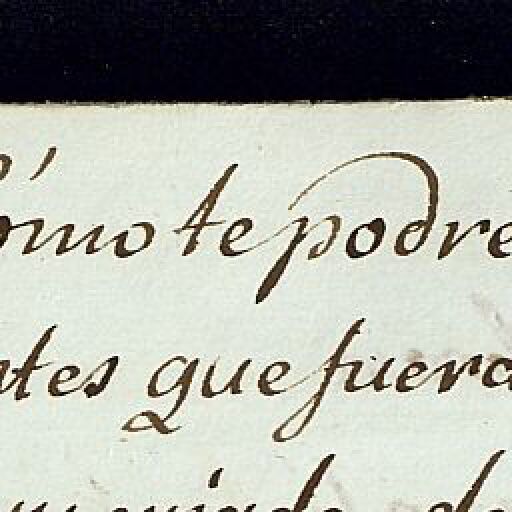 ómo te podre
tes que fuera